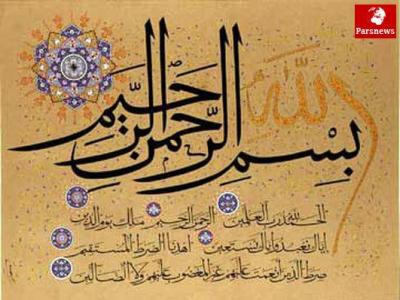 Parsnews
الله
بسم الله الرحمن الرحيم
الحمد لله رب العلمين الرحمن الرحيم ملك يوم الدين
اياك نعبد واياك نستعين اهدنا الصرط المستقيم
صرط الذين انعمت عليهم غير المغضوب عليهم ولا الضالين